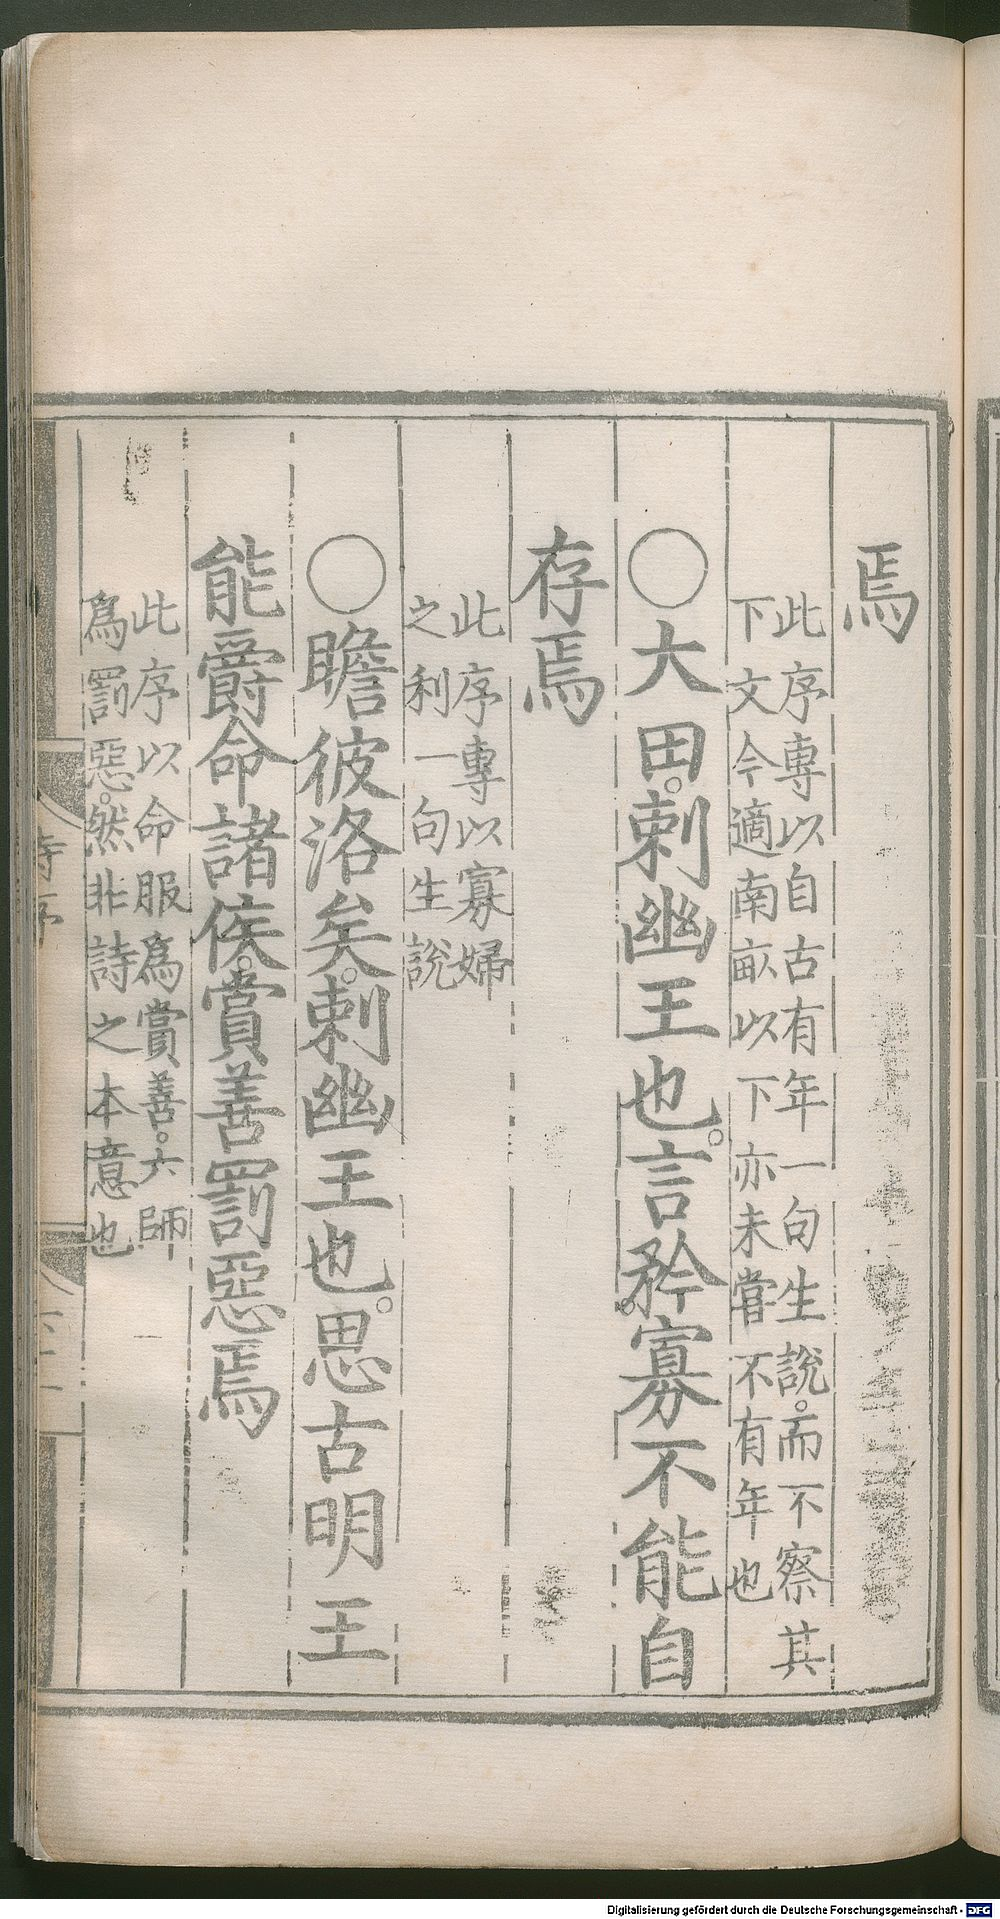 焉
此序專以自古有年一句生說。而不察其
下文今適南畝以下亦未嘗不有年也
〇大田。刺幽王也。言矜寡不能自
存焉
此序專以寡婦
之利一句生說
〇瞻彼洛矣。刺幽王也。思古明王
能爵命諸侯。賞善罰惡焉
此序以命服為賞善。六師
為罰惡。然非詩之本意也
詩序
Digitalisierung gefördert durch die Deutsche Forschungsgemeinschaft - DFG